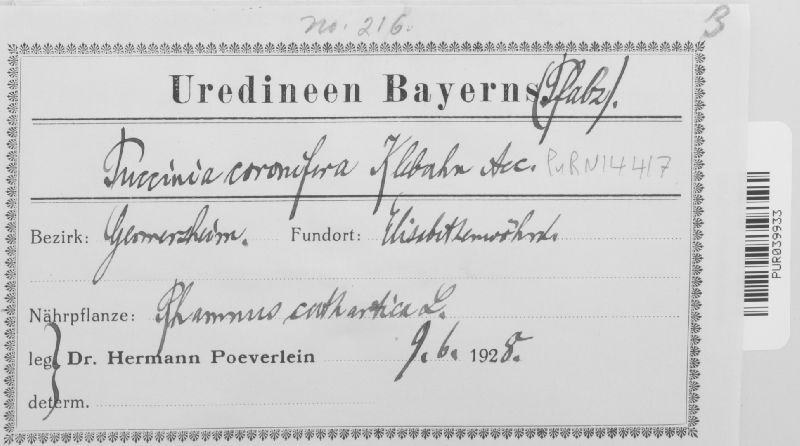 no. 216. B
Uredineen Bayerns (Pfalz).
Puccinia coronifera Klebahn Aec. PuR N14417
Bezirk: Germersheim. Fundort: Elisabethenwöhrd.
Nährpflanze: Rhamnus cathartica L.
leg. Dr. Hermann Poeverlein 9. 6. 1928.
determ.
PUR039933